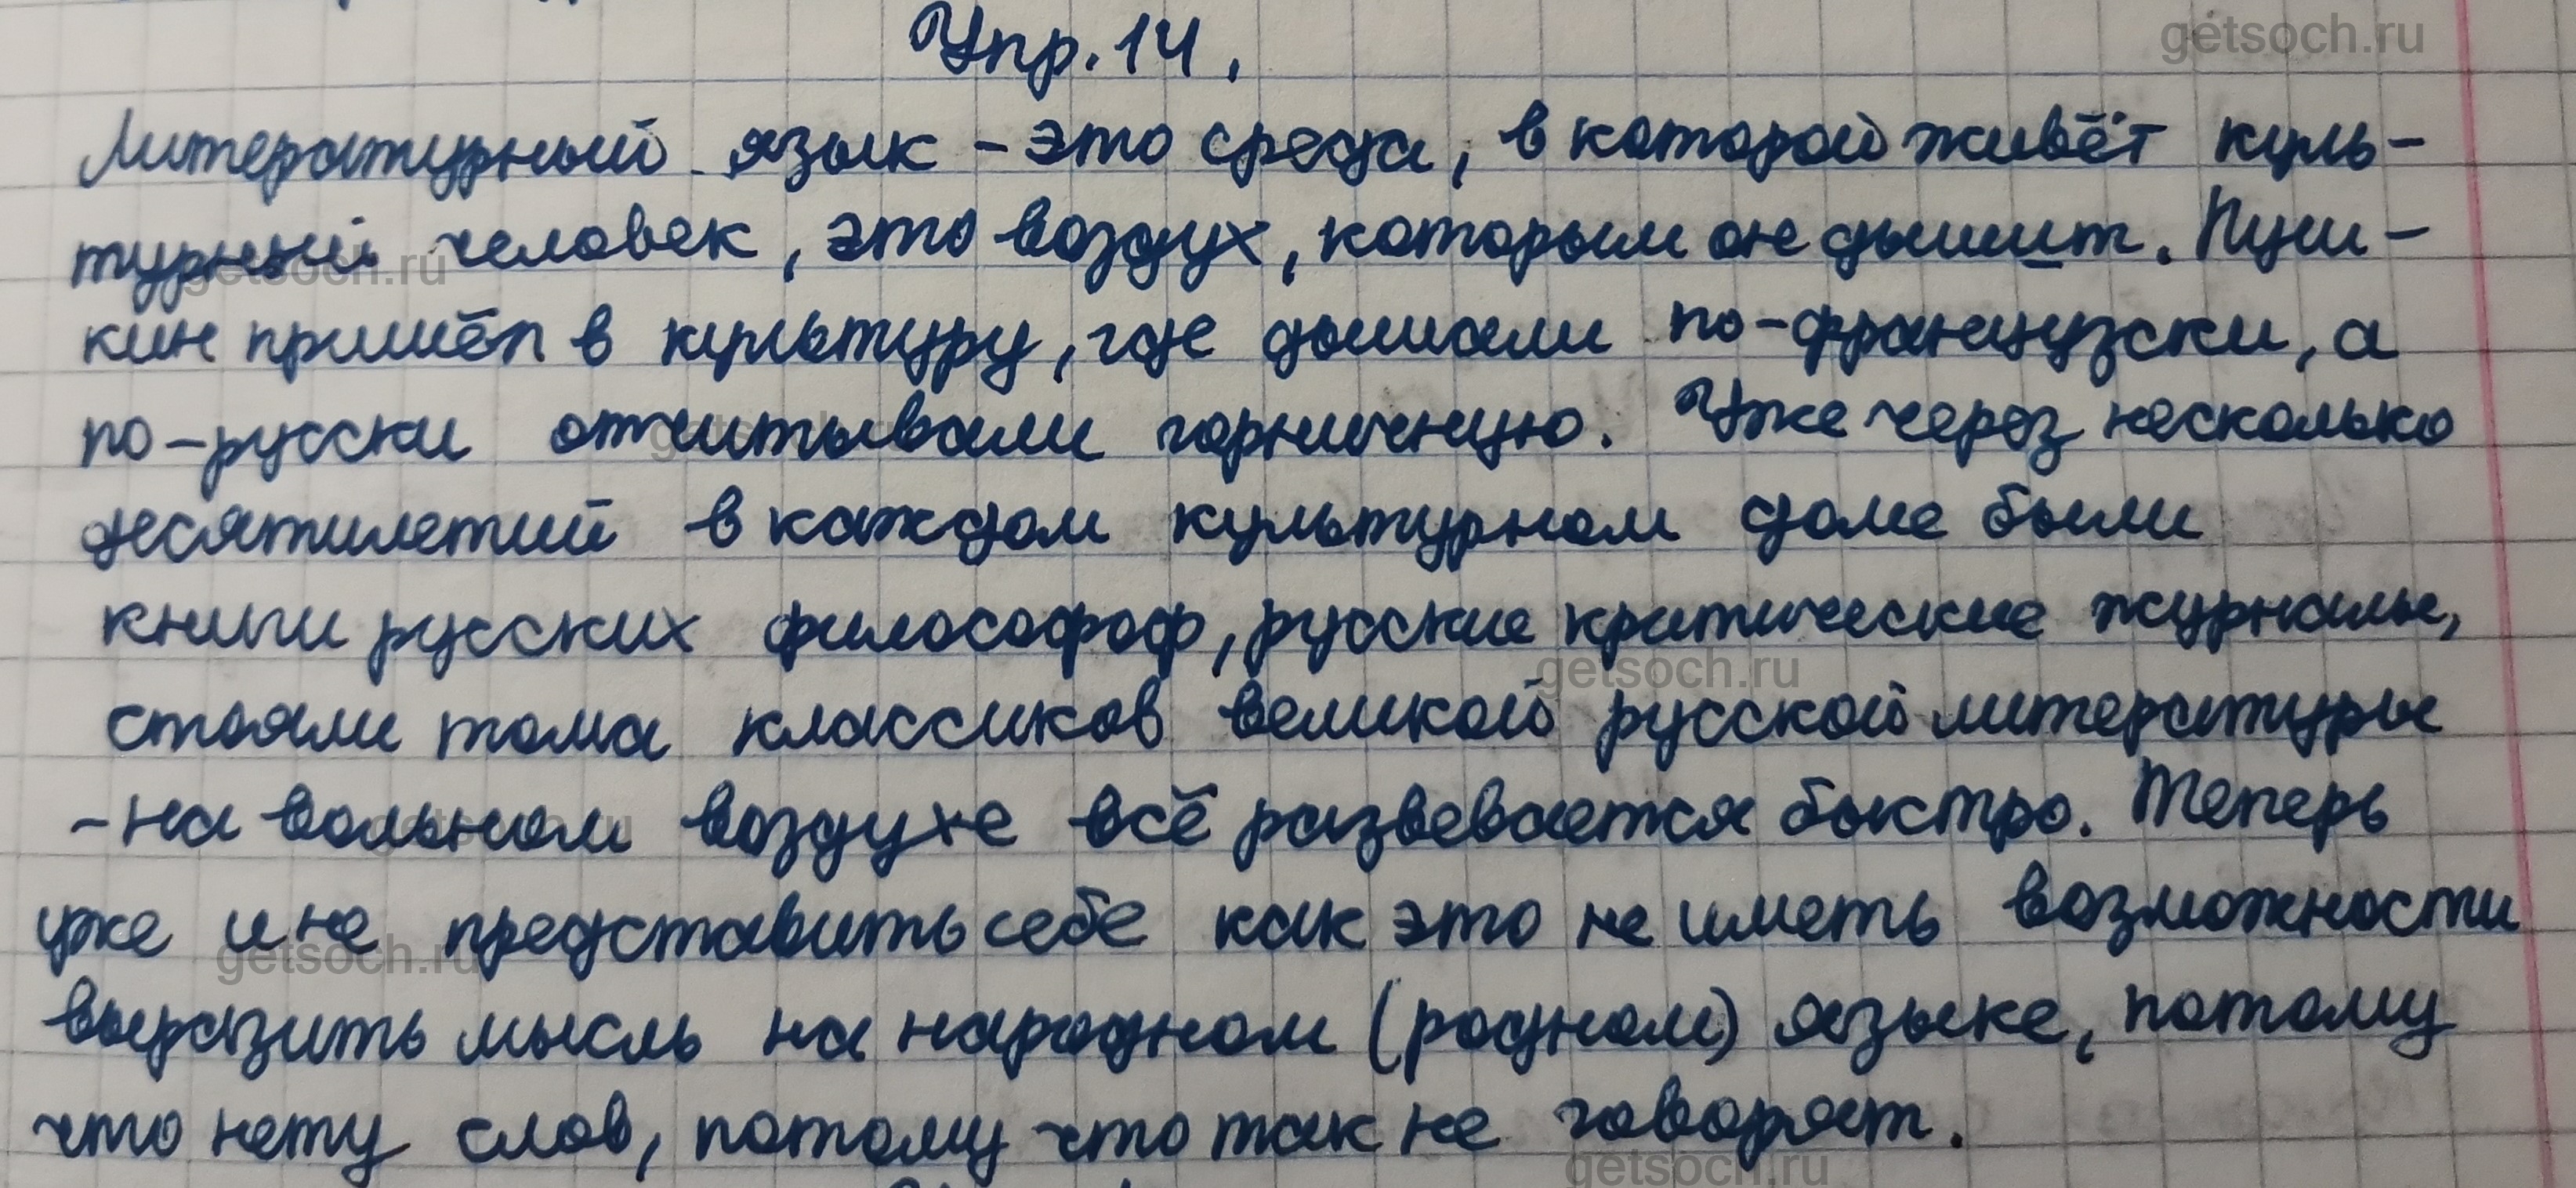 getsoch.ru
Упр. 14.
Литературный язык – это среда, в которой живёт куль-
турный человек, это воздух, которым он дышит. Пуш-
getsoch.ru
кин пришёл в культуру, где дышали по-французски, а
по-русски отчитывали горничную. Уже через несколько
getsoch.ru
десятилетий в каждом культурном доме были
книги русских философоф, русские критические журналы,
getsoch.ru
стояли тома классиков великой русской литературы
- на вольном воздухе всё развевается быстро. Теперь
getsoch.ru
уже и не представить себе как это не иметь возможности
getsoch.ru
выразить мысль на народном (родном) языке, потому
что нету слов, потому что так не говорят.
getsoch.ru